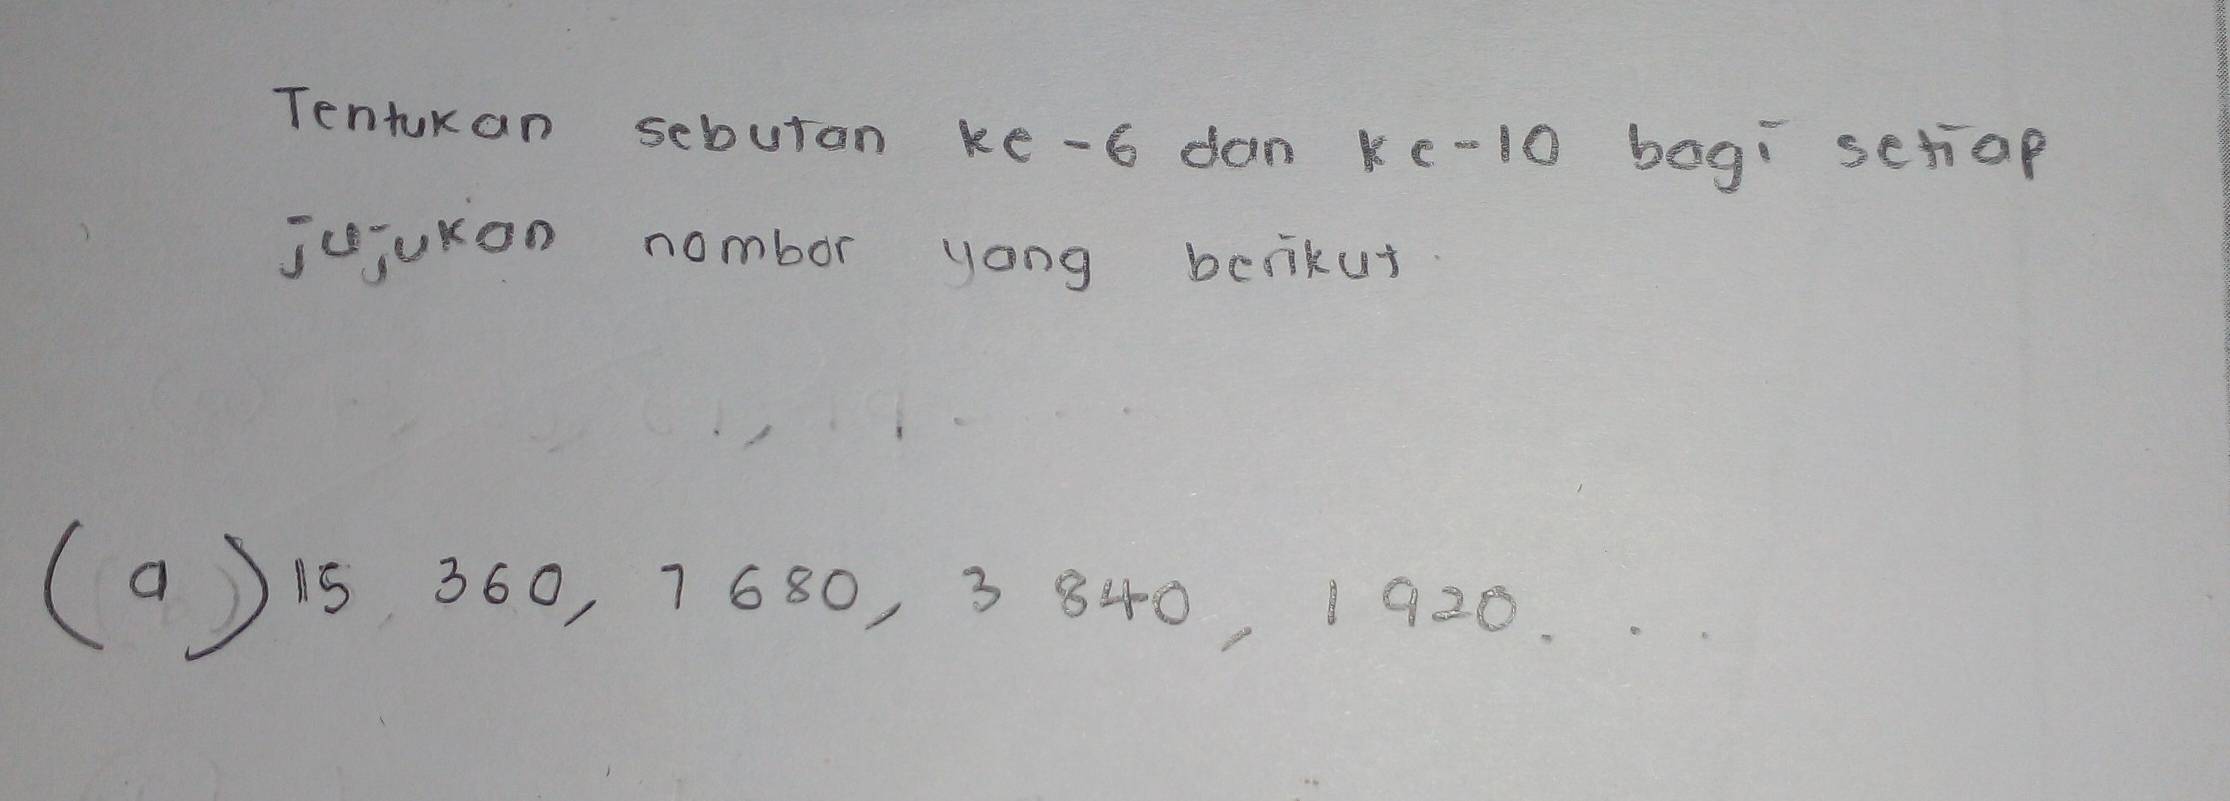 Tentukan sebutan ke-6 dan ke-10 bagi setiap
jujukan nombor yang berikut.
(a) 15 360, 7 680, 3 840, 1 920. . .